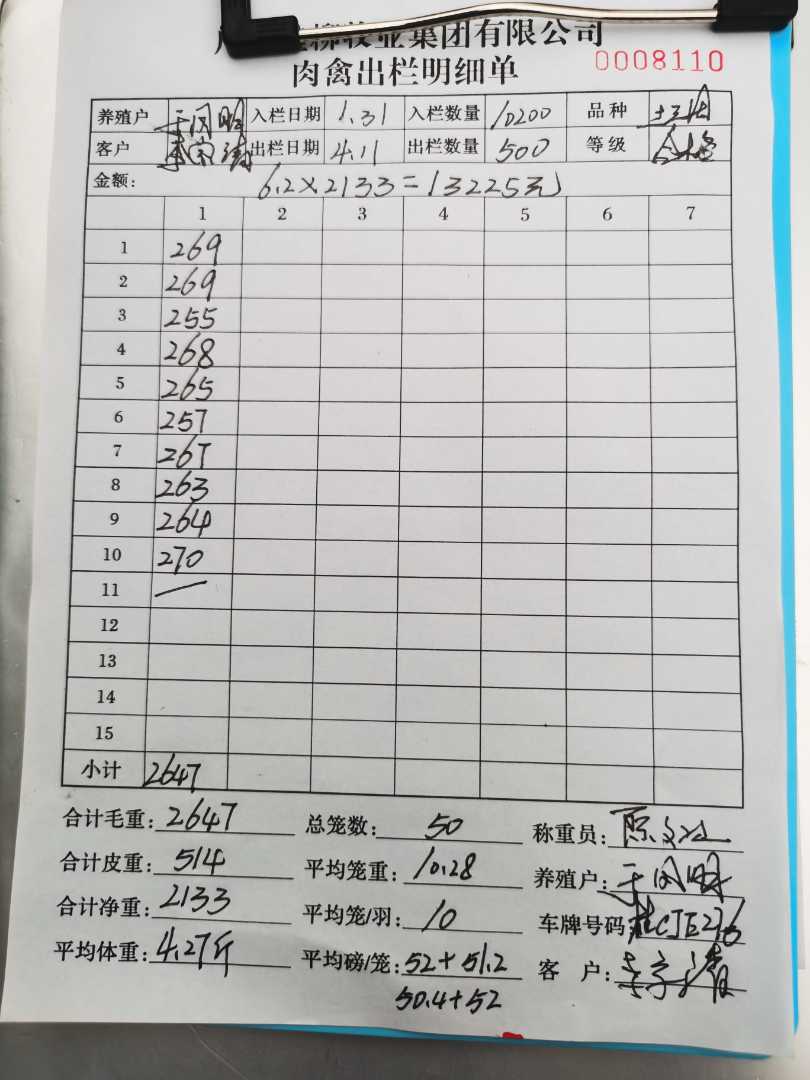 柳牧业集团有限公司
肉禽出栏明细单 0008110
养殖户 于闪明 入栏日期 1.31 入栏数量 10200 品种
客户 李宗清 出栏日期 4.11 出栏数量 500 等级 合格
金额: 6.2×2133=13225元
1 2 3 4 5 6 7
1 269
2 269
3 255
4 268
5 265
6 257
7 267
8 263
9 264
10 270
11 —
12
13
14
15
小计 2647
合计毛重: 2647 总笼数: 50 称重员:
合计皮重: 514 平均笼重: 10.28 养殖户: 于闪明
合计净重: 2133 平均笼/羽: 10 车牌号码: 桂CJE276
平均体重: 4.27斤 平均磅/笼: 52+51.2 客 户: 李宗清
50.4+52